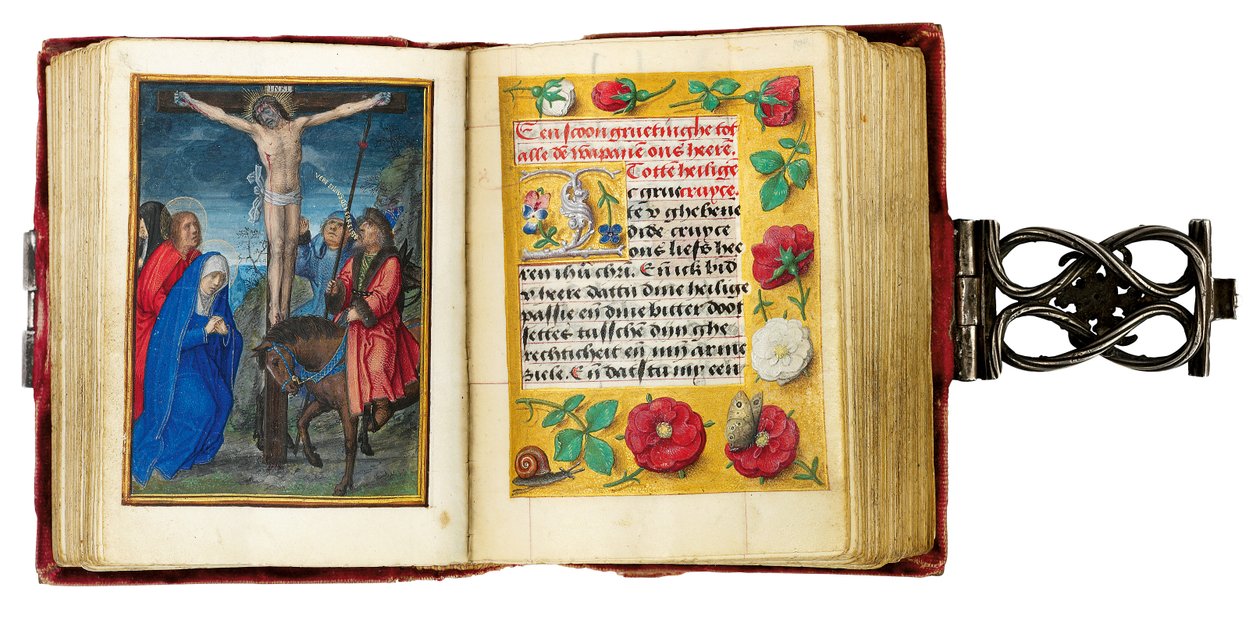 INRI
VERE FILIVS DEI ERAT ISTE
Een scoon gruetinghe tot
alle dē wapenē ons heerē.
Totte heilige
c gruecruyce.
te v ghebene
dide cruyce
ons liefs hee
ren ihū chrī. Eñ ick bid
v heere dattu dine heilige
passie eñ dine bitter doot
settes tusschē dijn ghe
rechticheit eñ mijn arme
ziele. Eñ datstu my een